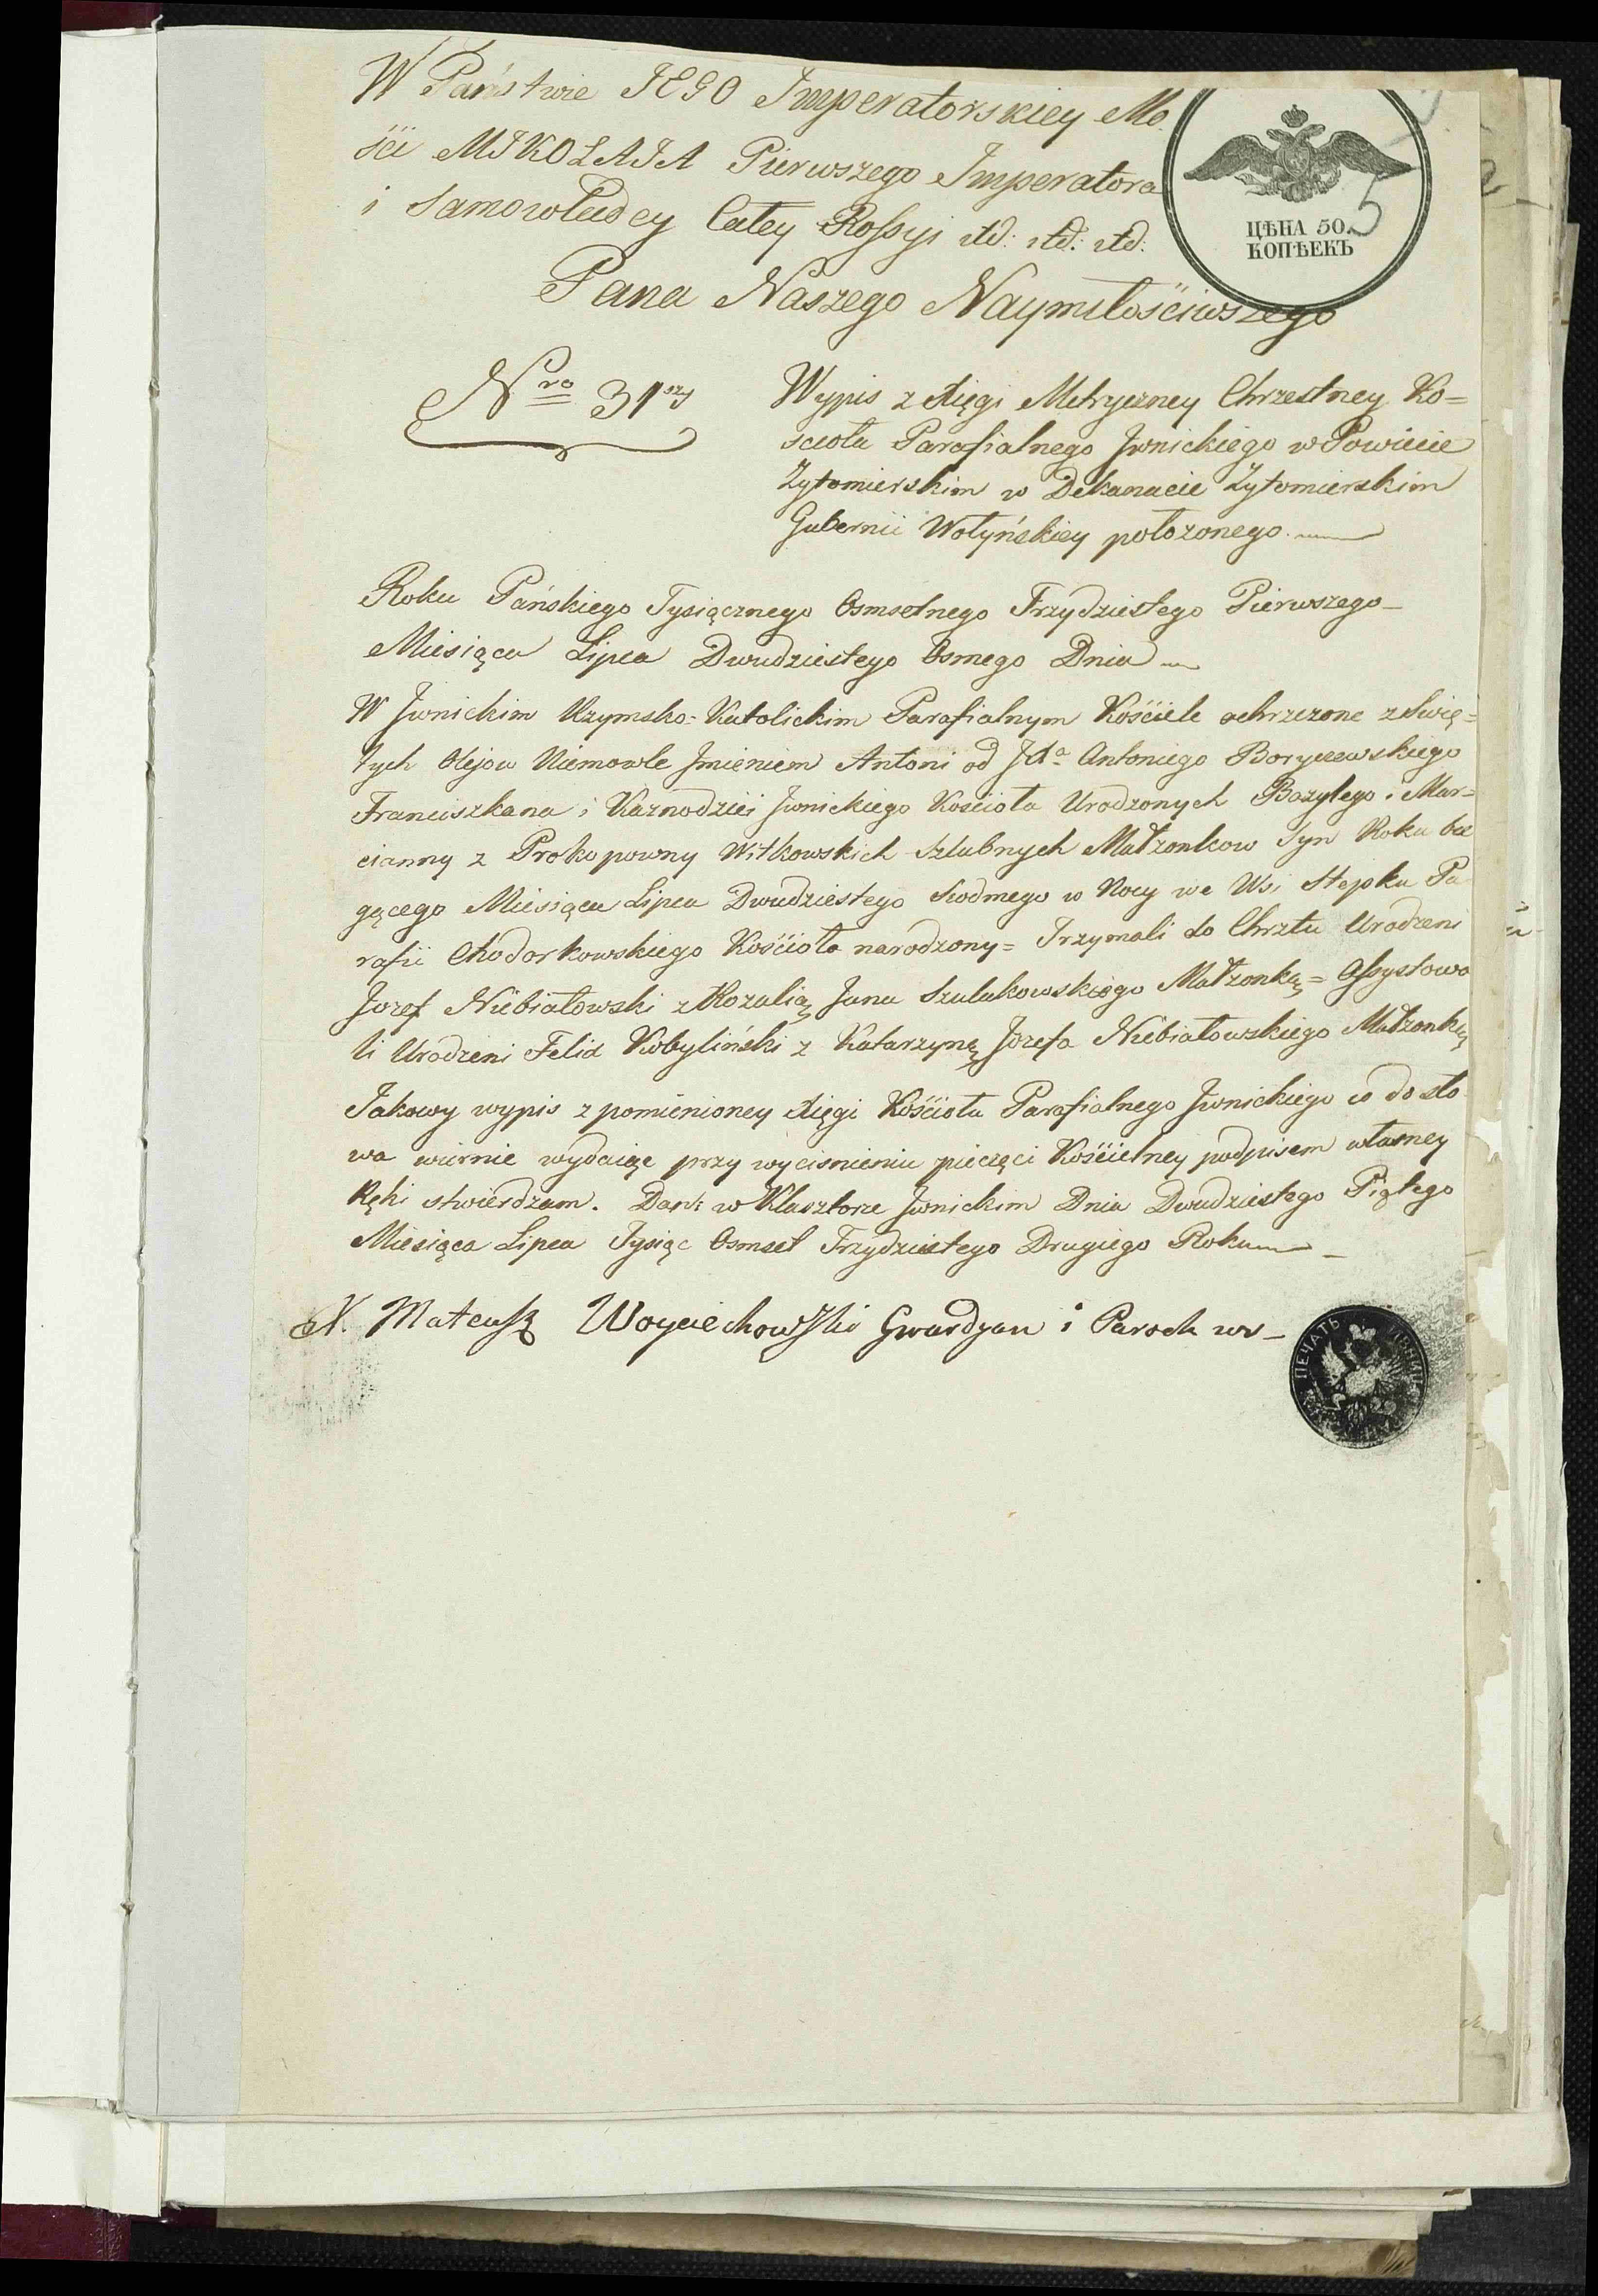 W Państwie JEGO Imperatorskiey Mo
ści MIKOŁAJA Pierwszego Imperatora
i Samowładcy Całey Rossyi itd: itd: itd:
Pana Naszego Naymiłościwszego
ЦѢНА 50.
КОПѢЕКЪ
5
Nro 31szy
Wypis z Xięgi Metryczney Chrzestney Ko=
scioła Parafialnego Iwnickiego w Powiecie
Zytomierskim w Dekanacie Zytomierskim
Gubernii Wołyńskiey położonego.
Roku Pańskiego Tysiącznego Osmsetnego Trzydziestego Pierwszego
Miesiąca Lipca Dwudziestego Osmego Dnia
W Iwnickim Rzymsko-Katolickim Parafialnym Kościele ochrzczone z Swię=
tych Olejow Niemowle Imieniem Antoni od JXa Antoniego Boryczewskiego
Franciszkana i Kaznodziei Iwnickiego Kościoła Urodzonych Bazylego i Mar=
cianny z Prokopowny Witkowskich Szlubnych Małzonkow Syn Roku bie
gącego Miesiąca Lipca Dwudziestego Siodmego w Nocy we Wsi Stepku Pa
rafii Chodorkowskiego Kościoła narodzony = Trzymali do Chrztu Urodzeni
Jozef Niebiałowski z Rozalią Jana Szulukowskiego Małzonką = Assystowa
li Urodzeni Felix Kobyliński z Katarzyną Jozefa Niebiałowskiego Małzonką
Jakowy wypis z pomienioney Xięgi Kościoła Parafialnego Iwnickiego co do sło
wa wiernie wydaiąc przy wycisnieniu pieczęci Kościelney podpisem własney
Ręki stwierdzam. Dan: w Klasztorze Iwnickim Dnia Dwudziestego Piątego
Miesiąca Lipca Tysiąc Osmset Trzydziestego Drugiego Roku
X. Mateusz Woyciechowski Gwardyan i Paroch
ПЕЧАТЬ